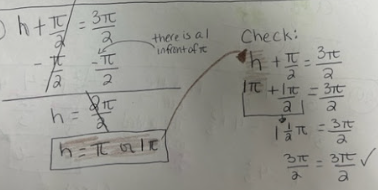 ) h + π/2 = 3π/2
- π/2 - π/2
there is a 1
infront of π
h = 2π/2
h = π or 1π
Check:
h + π/2 = 3π/2
1π + 1π/2 = 3π/2
1 1/2 π = 3π/2
3π/2 = 3π/2 ✓